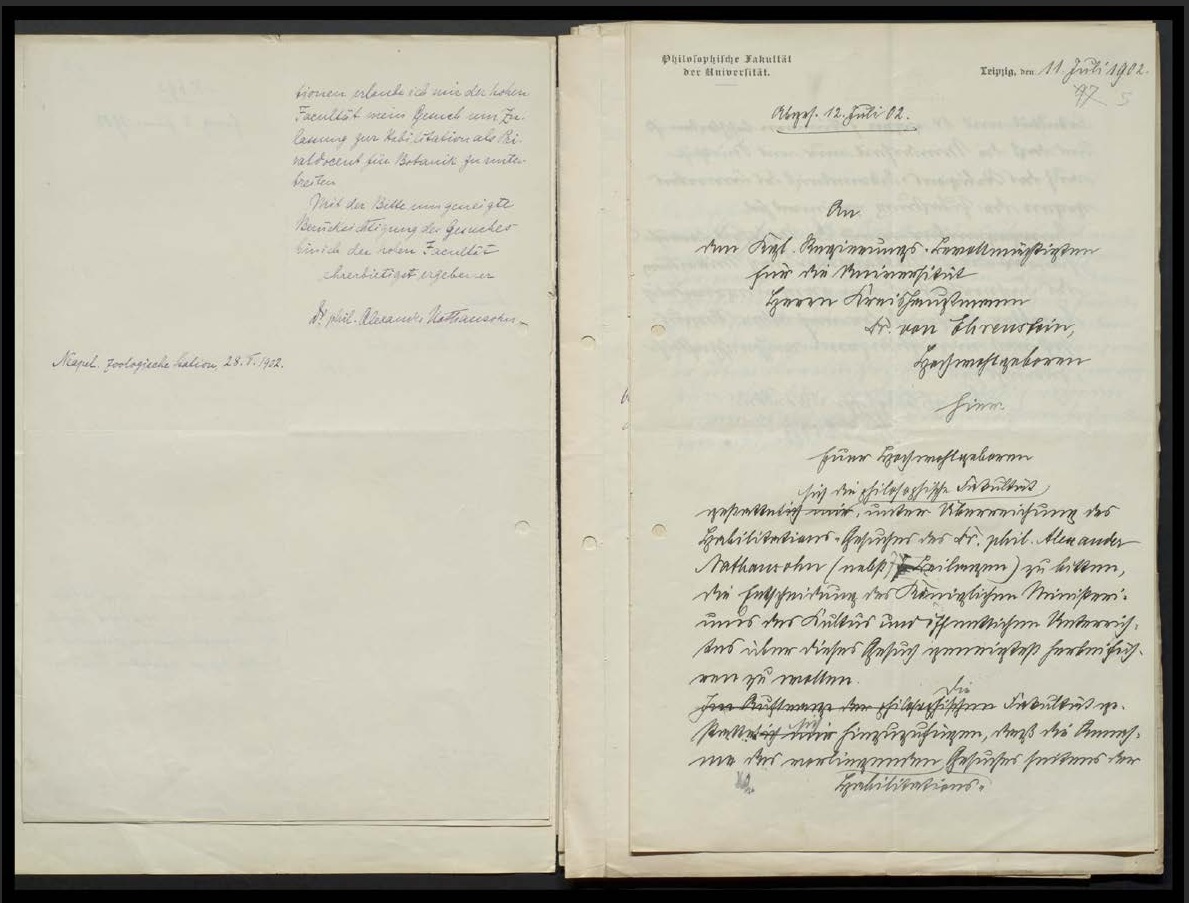 tionen erlaube ich mir der hohen
Facultät mein Gesuch um Zu-
lassung zur Habilitation als Pri-
vatdocent für Botanik zu unter-
breiten.
Mit der Bitte um geneigte
Berücksichtigung des Gesuches
bin ich der hohen Facultät
ehrerbietigst ergebener
Dr phil. Alexander Nathansohn
Neapel. Zoologische Station, 28. V. 1902.
Philosophische Fakultät
der Universität.
Leipzig, den 11 Juli 1902.
5
Abges. 12. Juli 02.
An
den Kgl. Regierungs-Bevollmächtigten
für die Universität
Herrn Kreishauptmann
Dr. von Ehrenstein,
Hochwohlgeboren
hier.
Euer Hochwohlgeboren
sich die philosophische Fakultät
gestattet ich mir, unter Überreichung des
Habilitations-Gesuches des Dr. phil. Alexander
Nathansohn (nebst Beilagen) zu bitten,
die Entscheidung des Königlichen Ministeri-
ums des Kultus und öffentlichen Unterrich-
tes über dieses Gesuch geneigtest herbeifüh-
ren zu wollen.
Die
Im Auftrage der philosophischen Fakultät ge-
sich
stattet ich mir hinzuzufügen, daß die Annah-
me des vorliegenden Gesuches seitens der
Habilitations-